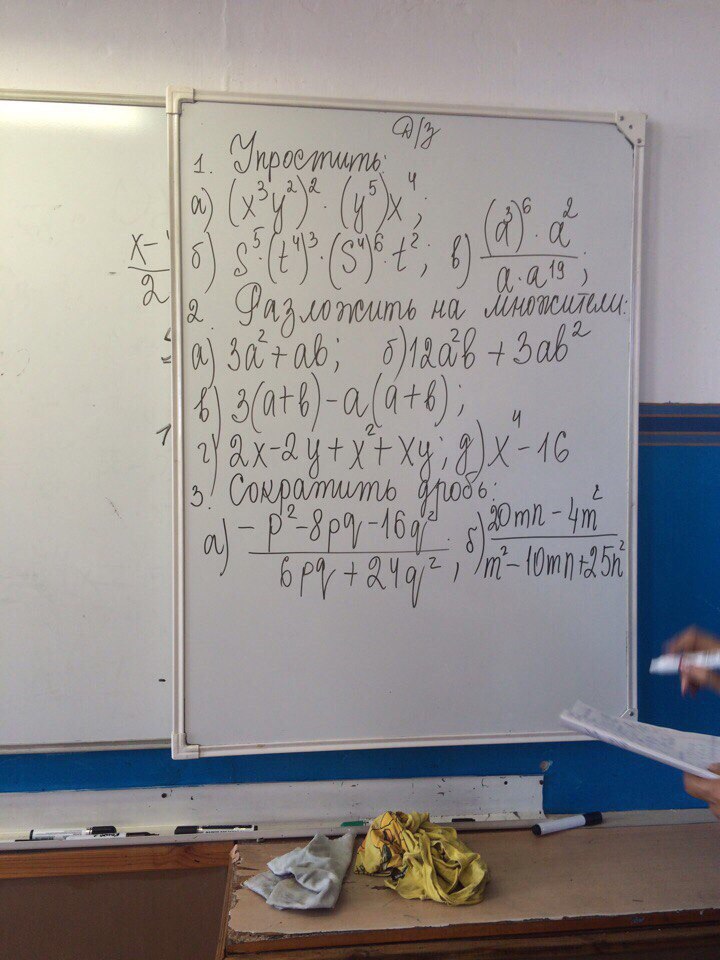 Д/З
1. Упростить:
а) (x³y²)² · (y⁵)x⁴;
б) S⁵·(t⁴)³·(S⁴)⁶·t²; в) (a³)⁶·a² / a·a¹⁹;
2. Разложить на множители:
а) 3a²+ab; б) 12a²b + 3ab²
в) 3(a+b)-a(a+b);
г) 2x-2y+x²+xy; д) x⁴-16
3. Сократить дробь:
а) -p²-8pq-16q² / 6pq+24q²; б) 20mn-4m² / m²-10mn+25n²
x-
2